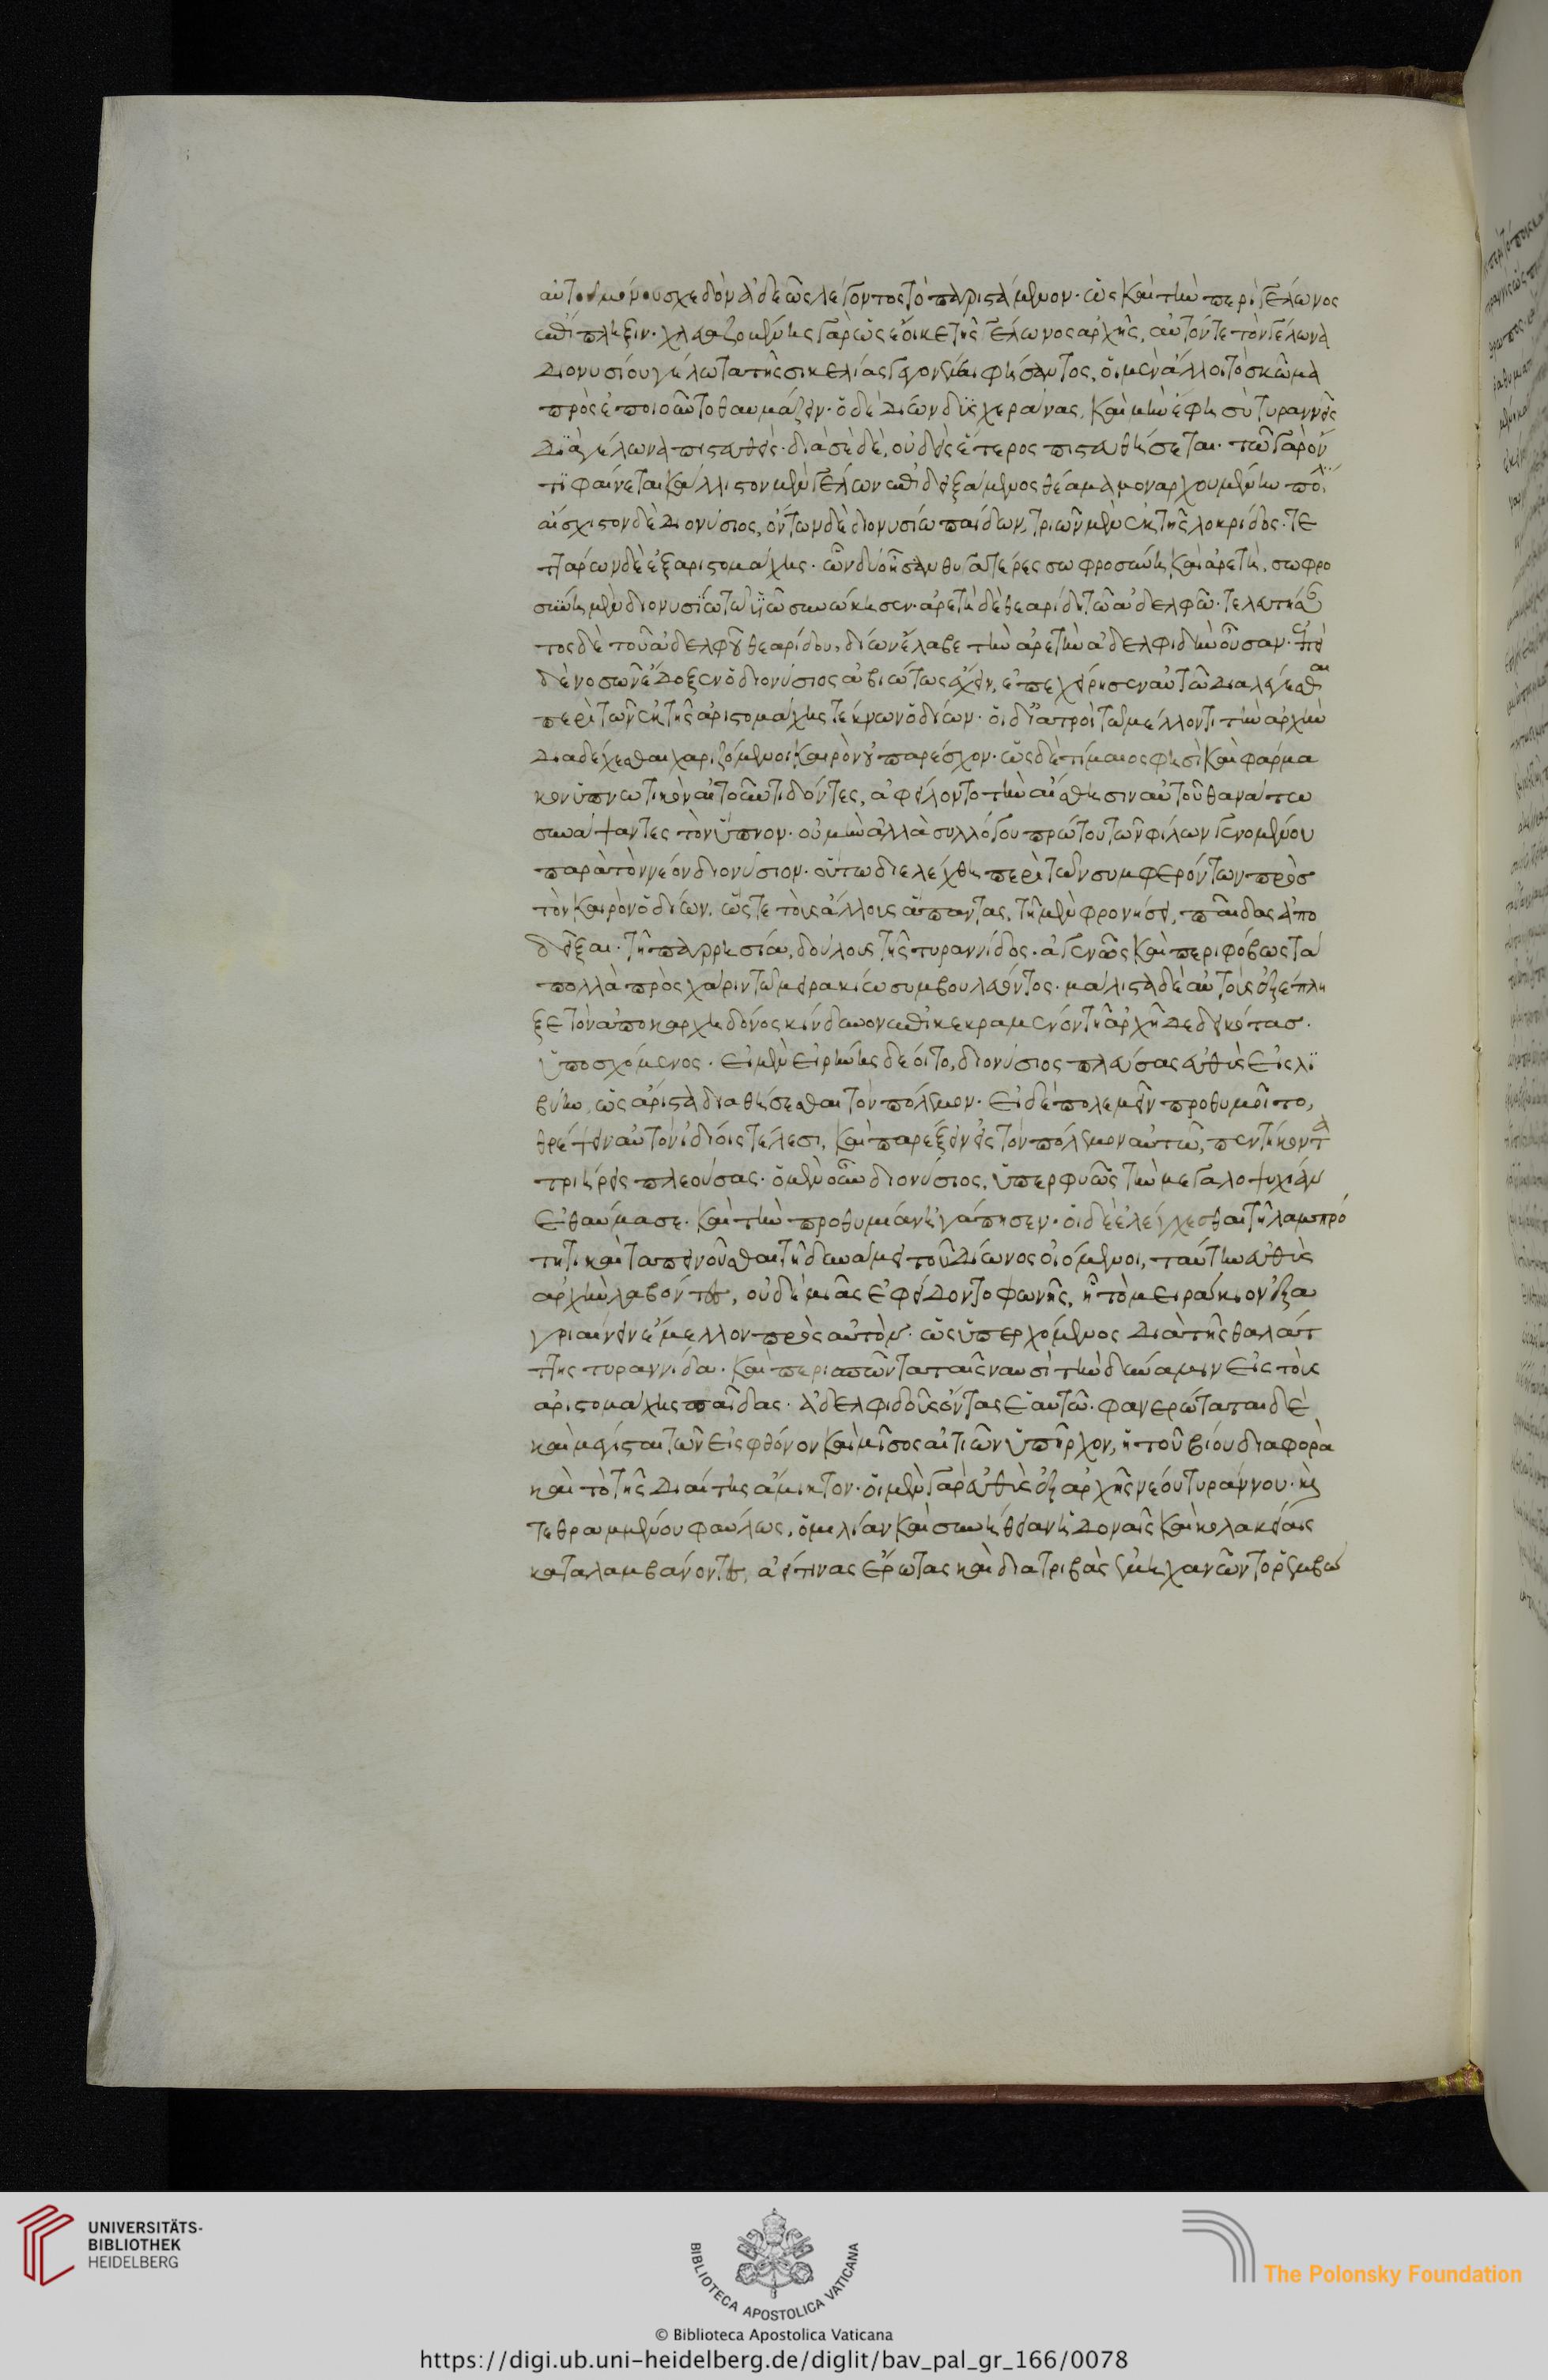 αὐτοῦ μόνου σχεδὸν ἀδεῶς λέγοντος τὸ παριστάμενον· ὡς καὶ τὴν περὶ Γέλωνος
ἐπίπληξιν· χλευαζομένης γὰρ ὡς ἔοικε τῆς Γέλωνος ἀρχῆς, αὐτόν τε τὸν Γέλωνα
Διονυσίου γέλωτα τῆς σικελίας γεγονέναι φήσαντος, οἱ μὲν ἄλλοι τὸ σκῶμμα
προσεποιοῦντο θαυμάζειν· ὁ δὲ Δίων δυσχεράνας, καὶ μὴν ἔφη σὺ τυραννεῖς
διὰ γέλωνα πιστευθείς· διὰ σὲ δὲ, οὐδεὶς ἕτερος πιστευθήσεται· τῷ γὰρ ὄν
τι φαίνεται κάλλιστον μὲν Γέλων ἐπιδειξάμενος θέαμα μοναρχουμένην πόλι
αἴσχιστον δὲ Διονύσιος, ὄντων δὲ διονυσίω παίδων, τριῶν μὲν ἐκ τῆς λοκρίδος· τε
ττάρων δὲ ἐξ ἀριστομάχης· ὧν δύο ἦσαν θυγατέρες σωφροσύνη καὶ ἀρετή, σωφρο
σύνη μὲν διονυσίω τῷ υἱῷ συνώκησεν· ἀρετὴ δὲ θεαρίδη τῷ ἀδελφῷ· τελευτήσαν
τος δὲ τοῦ ἀδελφοῦ θεαρίδου, δίων ἔλαβε τὴν ἀρετὴν ἀδελφιδῆν οὖσαν· ἐπεὶ
δὲ νοσῶν ἔδοξεν ὁ διονύσιος ἀβιώτως ἔχειν, ἐπεχείρησεν αὐτῷ διαλέγεσθαι
περὶ τῶν ἐκ τῆς ἀριστομάχης τέκνων ὁ δίων· οἱ δ' ἰατροὶ τῷ μέλλοντι τὴν ἀρχὴν
διαδέχεσθαι χαριζόμενοι καιρὸν οὐ παρέσχον· ὡς δὲ τίμαιος φησὶ καὶ φάρμα
κον ὑπνωτικὸν αἰτοῦντι δόντες, ἀφείλοντο τὴν αἴσθησιν αὐτοῦ θανάτω
συνάψαντες τὸν ὕπνον· οὐ μὴν ἀλλὰ συλλόγου πρώτου τῶν φίλων γενομένου
παρὰ τὸν νέον διονύσιον· οὕτω διελέχθη περὶ τῶν συμφερόντων πρὸς
τὸν καιρὸν ὁ δίων, ὥστε τοὺς ἄλλους ἅπαντας, τῇ μὲν φρονήσει, παῖδας ἀπο
δεῖξαι· τῇ παρρησία, δούλους τῆς τυραννίδος· ἀγενῶς καὶ περιφόβως τὰ
πολλὰ πρὸς χάριν τῷ μειρακίω συμβουλεύοντος· μάλιστα δὲ αὐτοὺς ἐξέπλη
ξε τὸν ἀπὸ καρχηδόνος κίνδυνον ἐπικεκραμενόν τῇ ἀρχῇ δεδοικότας·
ὑποσχόμενος· εἰ μὲν εἰρήνης δέοιτο, διονύσιος πλεύσας εὐθὺς εἰς λι
βύην, ὡς ἄριστα διαθήσεσθαι τὸν πόλεμον· εἰ δὲ πολεμεῖν προθυμοῖτο,
θρέψειν αὐτὸν ἰδίοις τέλεσι, καὶ παρέξειν εἰς τὸν πόλεμον αὐτῷ, πεντήκοντα
τριήρεις πλεούσας· ὁ μὲν οὖν διονύσιος, ὑπερφυῶς τὴν μεγαλοψυχίαν
ἐθαύμασε· καὶ τὴν προθυμίαν ἠγάπησεν· οἱ δὲ ἐλέγχεσθαι τῇ λαμπρό
τητι καὶ ταπεινοῦσθαι τῇ δυνάμει τοῦ Δίωνος οἰόμενοι, ταύτην εὐθὺς
ἀρχὴν λαβόντες, οὐδεμιᾶς ἐφείδοντο φωνῆς, ᾗ τὸ μειράκιον ἐξα
γριαίνειν ἔμελλον πρὸς αὐτόν· ὡς ὑπερχόμενος διὰ τῆς θαλάτ
της τυραννίδα· καὶ περισπῶντα ταῖς ναυσὶ τὴν δύναμιν εἰς τοὺς
ἀριστομάχης παῖδας· ἀδελφιδοῦς ὄντας ἑαυτῷ· φανερώταται δὲ
καὶ μέγισται τῶν εἰς φθόνον καὶ μῖσος αἰτιῶν ὑπῆρχον, ἡ τοῦ βίου διαφορὰ
καὶ τὸ τῆς διαίτης ἄμικτον· οἱ μὲν γὰρ εὐθὺς ἐξ ἀρχῆς νέου τυράννου· καὶ
τεθραμμένου φαύλως, ὁμιλίαν καὶ συνήθειαν ἡδοναῖς καὶ κολακείαις
καταλαμβάνοντες, ἀεί τινας ἔρωτας καὶ διατριβὰς ἐμηχανῶντο ῥεμβώ
UNIVERSITÄTS-
BIBLIOTHEK
HEIDELBERG
BIBLIOTECA APOSTOLICA VATICANA
The Polonsky Foundation
© Biblioteca Apostolica Vaticana
https://digi.ub.uni-heidelberg.de/diglit/bav_pal_gr_166/0078